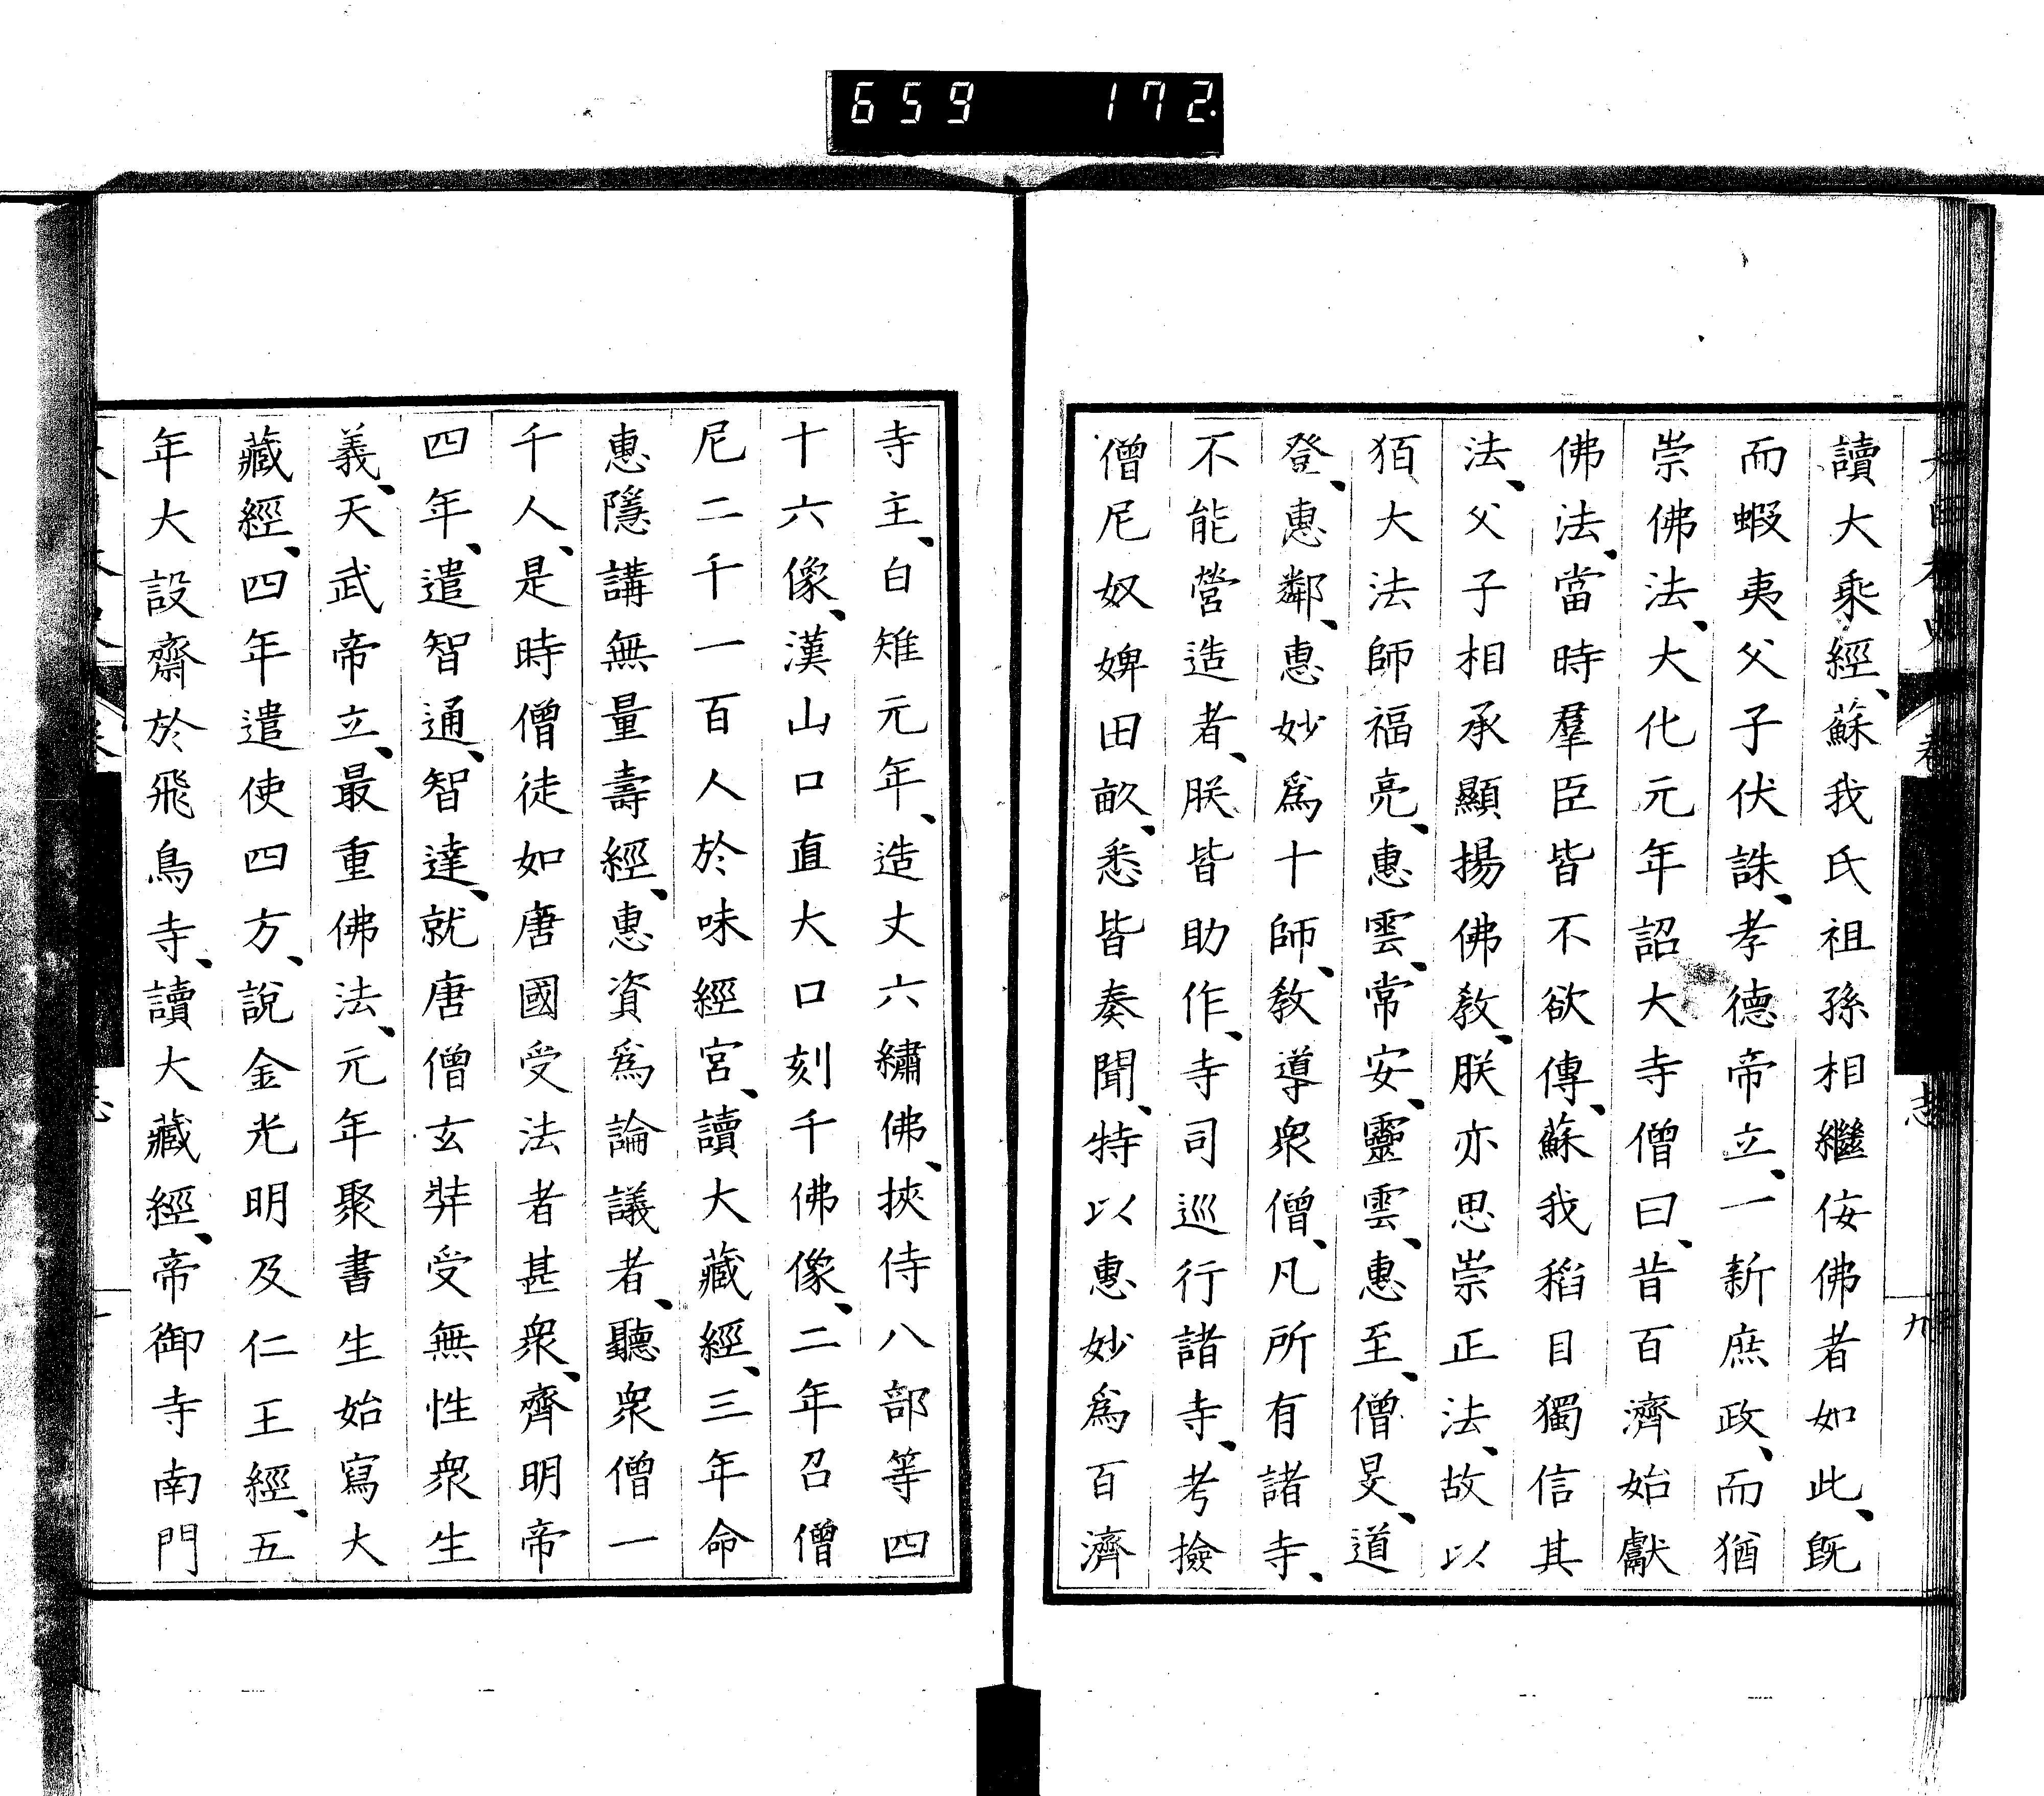 659 172
讀大乘經、蘇我氏祖孫相繼侫佛者如此、既
而蝦夷父子伏誅、孝德帝立、一新庶政、而猶
崇佛法、大化元年詔大寺僧曰、昔百濟始獻
佛法、當時羣臣皆不欲傳、蘇我稻目獨信其
法、父子相承顯揚佛教、朕亦思崇正法、故以
狛大法師福亮、惠雲、常安、靈雲、惠至、僧旻、道
登、惠鄰、惠妙爲十師、教導衆僧、凡所有諸寺、
不能營造者、朕皆助作、寺司巡行諸寺、考撿
僧尼奴婢田畝、悉皆奏聞、特以惠妙爲百濟
寺主、白雉元年、造丈六繡佛、挾侍八部等四
十六像、漢山口直大口刻千佛像、二年召僧
尼二千一百人於味經宮、讀大藏經、三年命
惠隱講無量壽經、惠資爲論議者、聽衆僧一
千人、是時僧徒如唐國受法者甚衆、齊明帝
四年、遣智通、智達、就唐僧玄奘受無性衆生
義、天武帝立、最重佛法、元年聚書生始寫大
藏經、四年遣使四方、說金光明及仁王經、五
年大設齋於飛鳥寺、讀大藏經、帝御寺南門